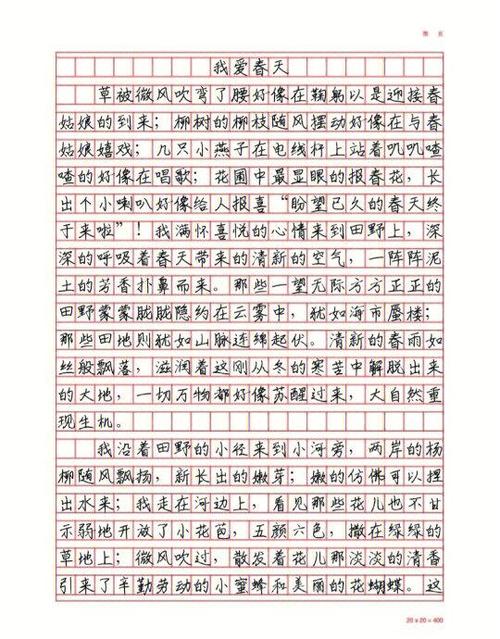 第 页
我爱春天
草被微风吹弯了腰好像在鞠躬以是迎接春
姑娘的到来；柳树的柳枝随风摆动好像在与春
姑娘嬉戏；几只小燕子在电线杆上站着叽叽喳
喳的好像在唱歌；花圃中最显眼的报春花，长
出个小喇叭好像给人报喜“盼望已久的春天终
于来啦”！我满怀喜悦的心情来到田野上，深
深的呼吸着春天带来的清新的空气，一阵阵泥
土的芳香扑鼻而来。那些一望无际方方正正的
田野蒙蒙胧胧隐约在云雾中，犹如海市蜃楼；
那些田地则犹如山脉连绵起伏。清新的春雨如
丝般飘落，滋润着这刚从冬的寒苦中解脱出来
的大地，一切万物都好像苏醒过来，大自然重
现生机。
我沿着田野的小径来到小河旁，两岸的杨
柳随风飘扬，新长出的嫩芽；嫩的仿佛可以捏
出水来；我走在河边上，看见那些花儿也不甘
示弱地开放了小花苞，五颜六色，撒在绿绿的
草地上；微风吹过，散发着花儿那淡淡的清香
引来了辛勤劳动的小蜜蜂和美丽的花蝴蝶。这
20 x 20 = 400